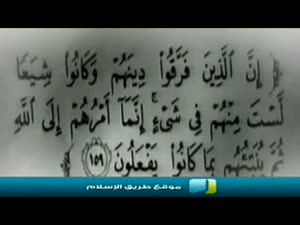 إِنَّ ٱلَّذِينَ فَرَّقُوا۟ دِينَهُمْ وَكَانُوا۟ شِيَعًا
لَّسْتَ مِنْهُمْ فِى شَىْءٍ ۚ إِنَّمَآ أَمْرُهُمْ إِلَى ٱللَّهِ
ثُمَّ يُنَبِّئُهُم بِمَا كَانُوا۟ يَفْعَلُونَ ١٥٩
موقع طريق الإسلام